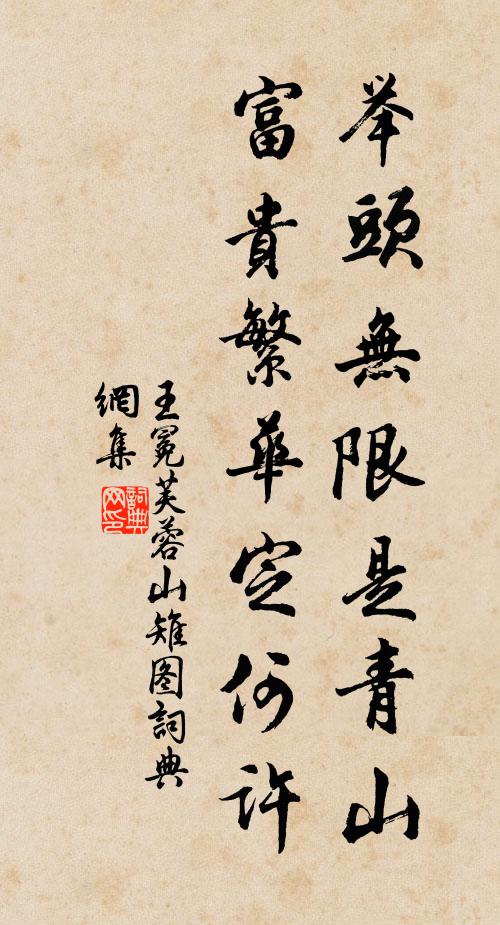 举頭無限是青山
富貴繁華定何許
王冕芙蓉山雉图詞典
網集
詞典网印